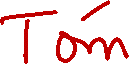 Tóm